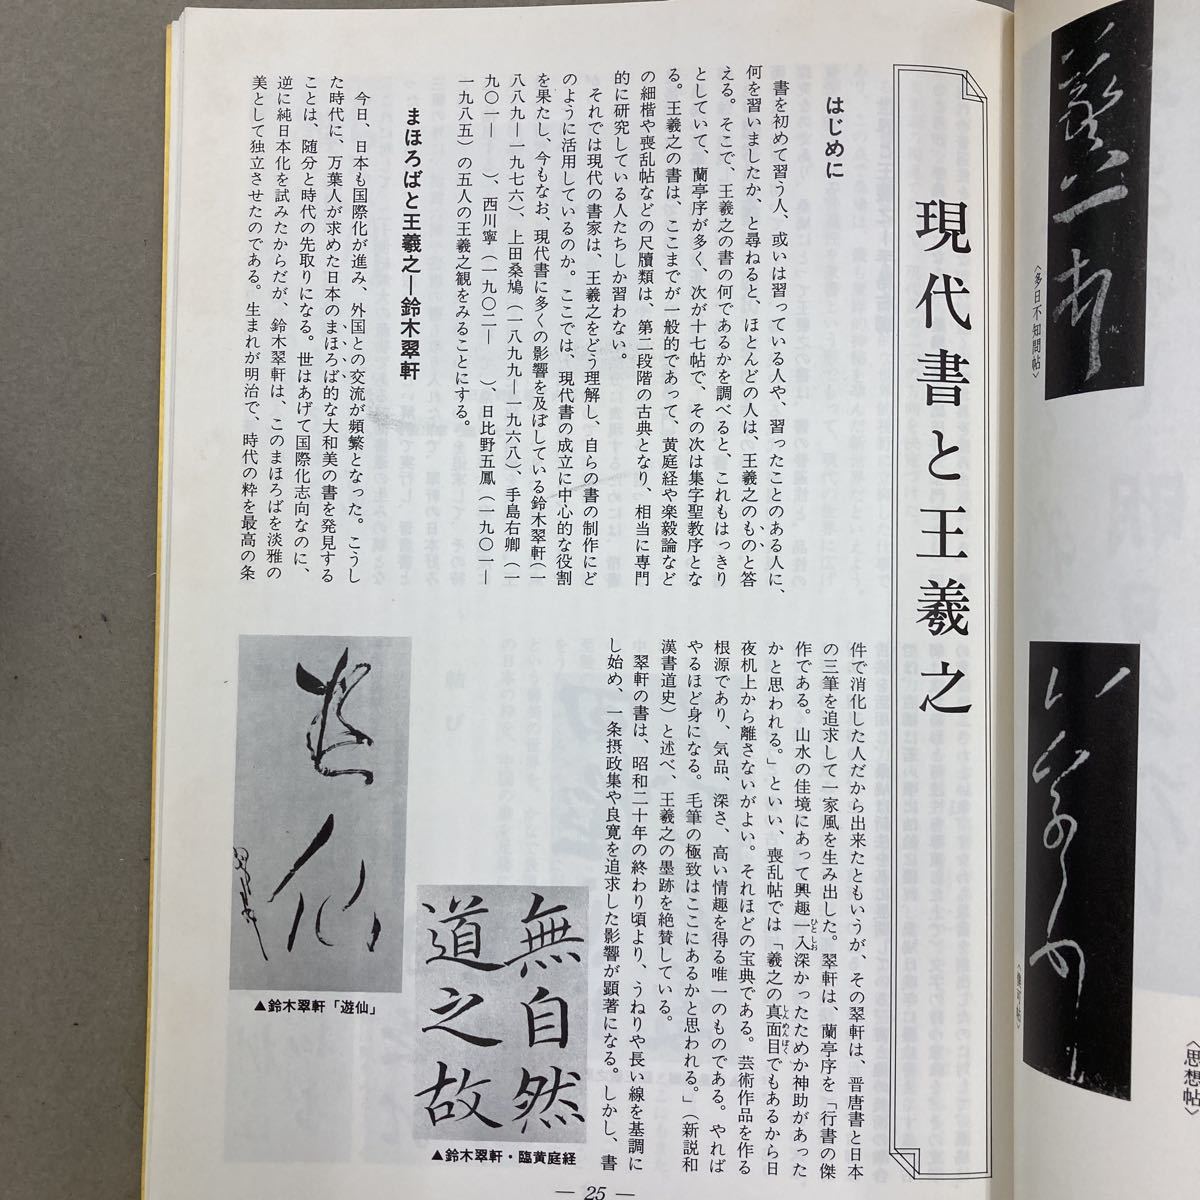 現代書と王羲之
はじめに
書を初めて習う人、或いは習っている人や、習ったことのある人に、
何を習いましたか、と尋ねると、ほとんどの人は、王羲之のものと答
える。そこで、王羲之の書の何であるかを調べると、これもはっきり
としていて、蘭亭序が多く、次が十七帖で、その次は集字聖教序とな
る。王羲之の書は、ここまでが一般的であって、黄庭経や楽毅論など
の細楷や喪乱帖などの尺牘類は、第二段階の古典となり、相当に専門
的に研究している人たちしか習わない。
それでは現代の書家は、王羲之をどう理解し、自らの書の制作にど
のように活用しているのか。ここでは、現代書の成立に中心的な役割
を果たし、今もなお、現代書に多くの影響を及ぼしている鈴木翠軒(一
八八九―一九七六)、上田桑鳩(一八九九―一九六八)、手島右卿(一
九〇一―　　)、西川寧(一九〇二―　　)、日比野五鳳(一九〇一―
一九八五)の五人の王羲之観をみることにする。
まほろばと王羲之―鈴木翠軒
今日、日本も国際化が進み、外国との交流が頻繁となった。こうし
た時代に、万葉人が求めた日本のまほろば的な大和美の書を発見する
ことは、随分と時代の先取りになる。世はあげて国際化志向なのに、
逆に純日本化を試みたからだが、鈴木翠軒は、このまほろばを淡雅の
美として独立させたのである。生まれが明治で、時代の粋を最高の条
件で消化した人だから出来たともいうが、その翠軒は、晋唐書と日本
の三筆を追求して一家風を生み出した。翠軒は、蘭亭序を「行書の傑
作である。山水の佳境にあって興趣一入深かったためか神助があった
ひとしお
かと思われる。」といい、喪乱帖では「羲之の真面目でもあるから日
しんめんぼく
夜机上から離さないがよい。それほどの宝典である。芸術作品を作る
根源であり、気品、深さ、高い情趣を得る唯一のものである。やれば
やるほど身になる。毛筆の極致はここにあるかと思われる。」(新説和
漢書道史)と述べ、王羲之の墨跡を絶賛している。
翠軒の書は、昭和二十年の終わり頃より、うねりや長い線を基調に
し始め、一条摂政集や良寛を追求した影響が顕著になる。しかし、書
遊仙
▲鈴木翠軒「遊仙」
無自然
道之故
▲鈴木翠軒・臨黄庭経
— 25 —
〈多日不知問帖〉
〈思想帖〉